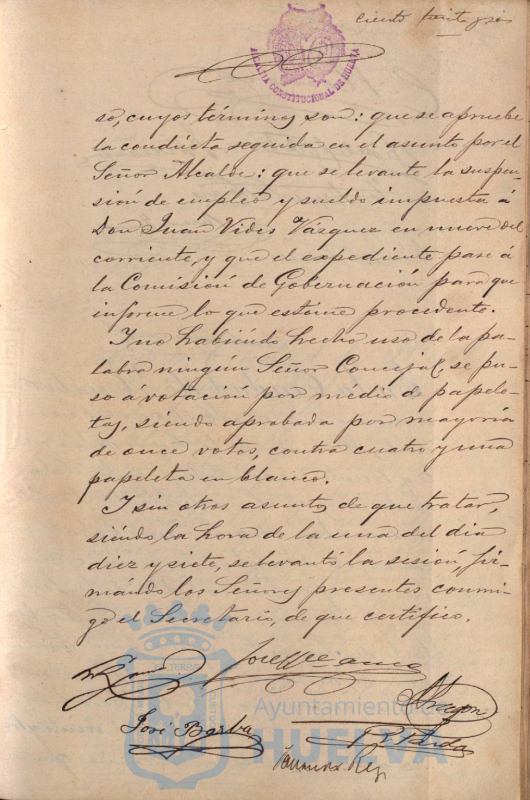 Ciento treinta y seis
ALCALDIA CONSTITUCIONAL DE HUELVA
so, cuyos términos son: que se apruebe
la conducta seguida en el asunto por el
Señor Alcalde: que se levante la suspen-
sión de empleo y sueldo impuesta á
Don Juan Vides Vázquez en nueve del
corriente, y que el expediente pase á
la Comisión de Gobernación para que
informe lo que estime procedente.
Y no habiéndo hecho uso de la pa-
labra ningún Señor Concejal, se pu-
so á votación por médio de papele-
tas, siendo aprobada por mayoría
de once votos, contra cuatro y una
papeleta en blanco.
Y sin otros asuntos de que tratar,
siéndo la hora de la una del dia
diez y siete, se levantó la sesión, fir-
mándo los Señores presentes conmi-
go el Secretario, de que certifico.
José Barba
Ayuntamiento de
HUELVA